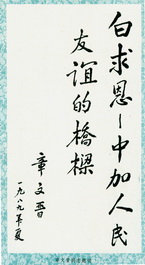 白求恩—中加人民
友谊的橋樑
章文晋
一九八九年夏